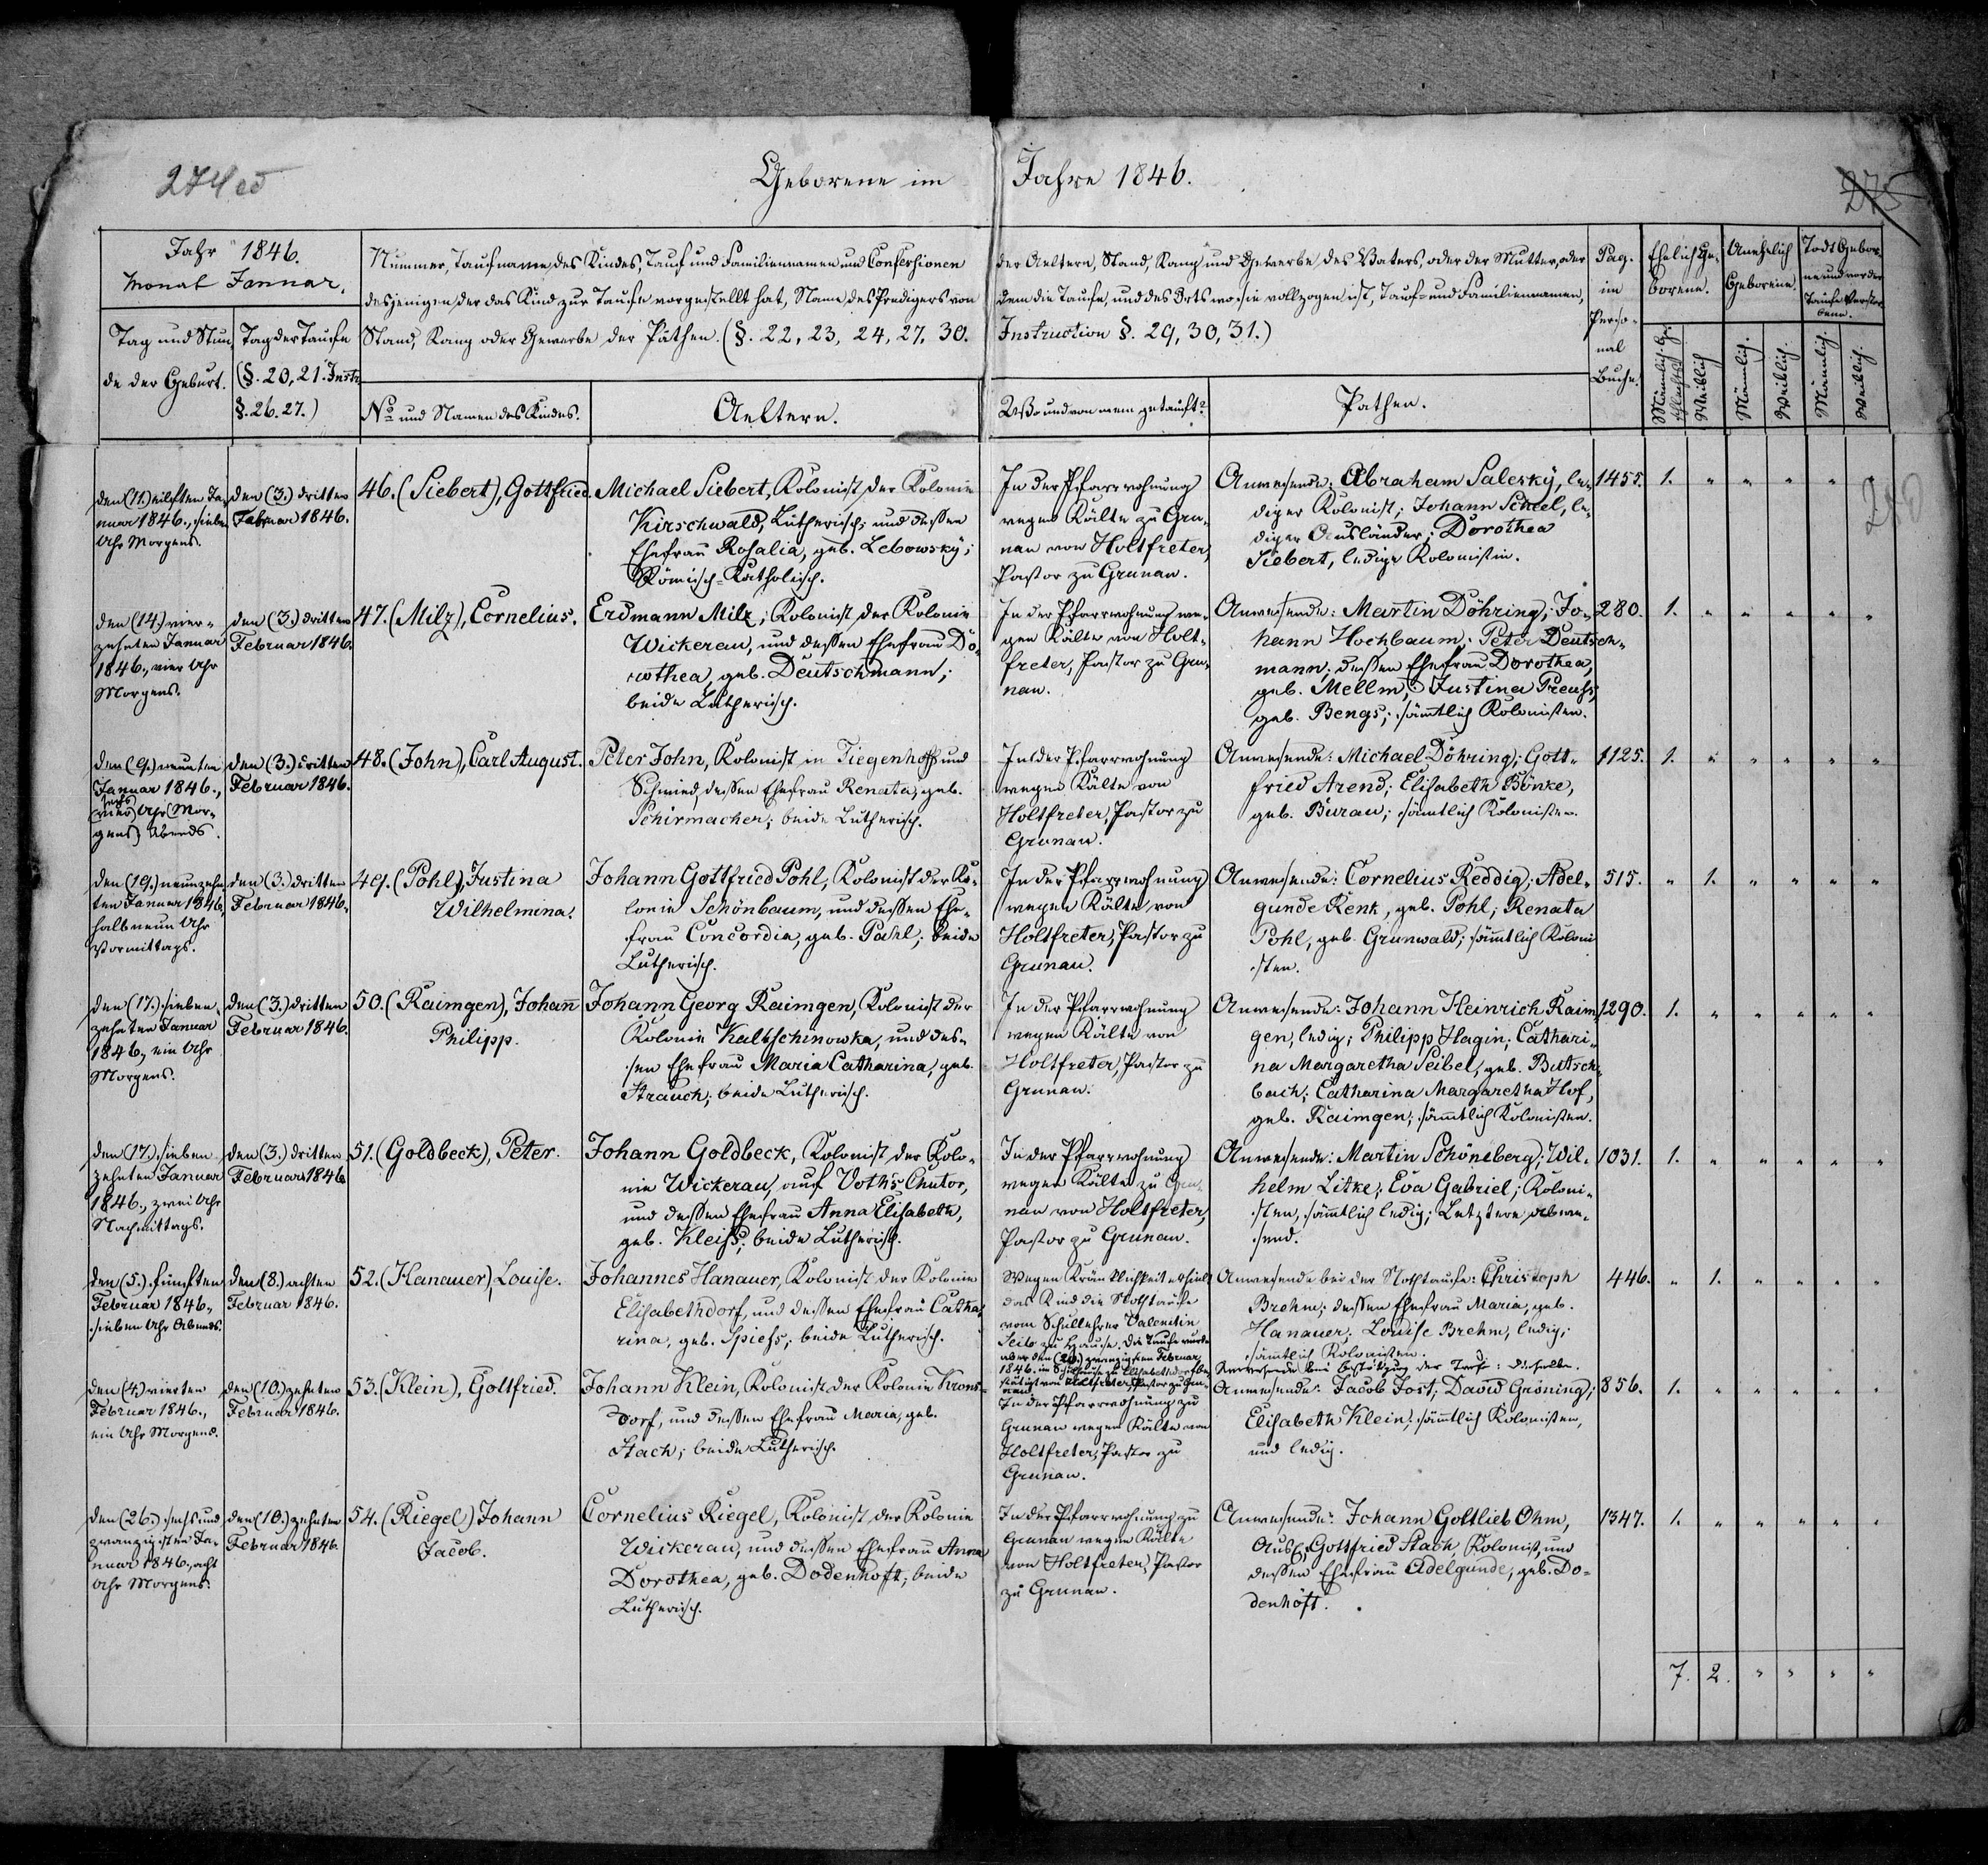 274
Geborene im Jahre 1846.
275
Jahr 1846.
Monat Januar.
Tag und Stun-
de der Geburt.
Tag der Taufe
(§. 20, 21. Instr.
§. 26. 27.)
Nummer, Taufname des Kindes, Tauf und Familiennamen und Confessionen
desjenigen der das Kind zur Taufe vorgestellt hat, Name des Predigers von
Stand, Rang oder Gewerbe der Pathen. (§. 22, 23, 24, 27, 30.
No und Namen des Kindes.
Aeltern.
der Aeltern, Stand, Rang und Gewerbe des Vaters, oder der Mutter, oder
dem die Taufe, und des Orts wo sie vollzogen ist, Tauf- und Familiennamen,
Instruction §. 29, 30, 31.)
Wo und von wem getauft?
Pathen.
Pag.
im
Perso-
nal
Buche.
Ehelich Ge-
borene.
Unehelich
Geborene.
Todt Gebor-
ne und vor der
Taufe Verstor-
bene.
Männlich. Ge-
schlechts
Weiblich
Männlich.
Weiblich.
Männlich.
Weiblich.
den (11.) eilften Ja-
nuar 1846., sieben
Uhr Morgens.
den (3.) dritten
Februar 1846.
46. (Siebert), Gottfried.
Michael Siebert, Kolonist der Kolonie
Kirschwald, Lutherisch; und dessen
Ehefrau Rosalia, geb. Lebowsky;
Römisch-Katholisch.
In der Pfarrwohnung
wegen Kälte zu Gru-
nau von Holtfreter,
Pastor zu Grunau.
Anwesende: Abraham Salesky, le-
diger Kolonist; Johann Scheel, le-
diger Ausländer; Dorothea
Siebert, ledige Kolonistin.
1455. 1. " " " " "
den (14.) vier-
zehnten Januar
1846., vier Uhr
Morgens.
den (3.) dritten
Februar 1846.
47. (Milz), Cornelius.
Erdmann Milz, Kolonist der Kolonie
Wickerau, und dessen Ehefrau Do-
rothea, geb. Deutschmann;
beide Lutherisch.
In der Pfarrwohnung we-
gen Kälte von Holt-
freter, Pastor zu Gru-
nau.
Anwesende: Martin Döhring; Jo-
hann Hochbaum; Peter Deutsch-
mann; dessen Ehefrau Dorothea,
geb. Mellm; Justina Preuss,
geb. Bengs; sämtlich Kolonisten.
280. 1. " " " " "
den (9.) neunten
Januar 1846.,
sechs
(vier) Uhr (Mor-
gens) Abends.
den (3.) dritten
Februar 1846.
48. (John), Carl August.
Peter John, Kolonist in Tiegenhoff und
Schmied, dessen Ehefrau Renata, geb.
Schirmacher; beide Lutherisch.
In der Pfarrwohnung
wegen Kälte von
Holtfreter, Pastor zu
Grunau.
Anwesende: Michael Döhring; Gott-
fried Arend; Elisabeth Bönke,
geb. Burau; sämtlich Kolonisten.
1125. 1. " " " " "
den (19.) neunzehn-
ten Januar 1846.,
halb neun Uhr
Vormittags.
den (3.) dritten
Februar 1846.
49. (Pohl), Justina
Wilhelmina.
Johann Gottfried Pohl, Kolonist der Ko-
lonie Schönbaum, und dessen Ehe-
frau Concordia, geb. Pahl; beide
Lutherisch.
In der Pfarrwohnung
wegen Kälte, von
Holtfreter, Pastor zu
Grunau.
Anwesende: Cornelius Reddig; Adel-
gunde Renk, geb. Pohl; Renata
Pohl, geb. Grunwald; sämtlich Koloni-
sten.
515. " 1. " " " "
den (17.) sieben-
zehnten Januar
1846., ein Uhr
Morgens.
den (3.) dritten
Februar 1846.
50. (Raimgen), Johann
Philipp.
Johann Georg Raimgen, Kolonist der
Kolonie Kaltschinowka, und des-
sen Ehefrau Maria Catharina, geb.
Strauch; beide Lutherisch.
In der Pfarrwohnung
wegen Kälte von
Holtfreter, Pastor zu
Grunau.
Anwesende: Johann Heinrich Raim-
gen, ledig; Philipp Hagin; Cathari-
na Margaretha Seibel, geb. Butsch-
bach; Catharina Margaretha Hof,
geb. Raimgen; sämtlich Kolonisten.
1290. 1. " " " " "
den (17.) sieben-
zehnten Januar
1846., zwei Uhr
Nachmittags.
den (3.) dritten
Februar 1846.
51. (Goldbeck), Peter.
Johann Goldbeck, Kolonist der Kolo-
nie Wickerau, auf Voth's Chutor,
und dessen Ehefrau Anna Elisabeth,
geb. Kleiss; beide Lutherisch.
In der Pfarrwohnung
wegen Kälte zu Gru-
nau von Holtfreter,
Pastor zu Grunau.
Anwesende: Martin Schönberg; Wil-
helm Litke; Eva Gabriel; Koloni-
sten, sämtlich ledig; Letztere abwe-
send.
1031. 1. " " " " "
den (5.) fünften
Februar 1846.,
sieben Uhr Abends.
den (8.) achten
Februar 1846.
52. (Hanauer), Louise.
Johannes Hanauer, Kolonist der Kolonie
Elisabethdorf, und dessen Ehefrau Catha-
rina, geb. Spiess; beide Lutherisch.
Wegen Kränklichkeit erhielt
das Kind die Nothtaufe
vom Schullehrer Valentin
Seib zu Hause. Die Taufe wurde
aber den (20.) zwanzigsten Februar
1846. im Schulhause zu Elisabethdorf be-
stätigt von Holtfreter, Pastor zu Gru-
nau.
Anwesende bei der Nothtaufe: Christoph
Brehm; dessen Ehefrau Maria, geb.
Hanauer; Louise Brehm, ledig;
sämtlich Kolonisten.
Anwesende bei Bestätigung der Taufe: Dieselben.
446. " 1. " " " "
den (4.) vierten
Februar 1846.,
ein Uhr Morgens.
den (10.) zehnten
Februar 1846.
53. (Klein), Gottfried.
Johann Klein, Kolonist der Kolonie Krons-
dorf, und dessen Ehefrau Maria, geb.
Stach; beide Lutherisch.
In der Pfarrwohnung zu
Grunau wegen Kälte von
Holtfreter, Pastor zu
Grunau.
Anwesende: Jacob Jost; David Gröning;
Elisabeth Klein; sämtlich Kolonisten,
und ledig.
856. 1. " " " " "
den (26.) sechs und
zwanzigsten Ja-
nuar 1846., acht
Uhr Morgens.
den (10.) zehnten
Februar 1846.
54. (Riegel) Johann
Jacob.
Cornelius Riegel, Kolonist der Kolonie
Wickerau, und dessen Ehefrau Anna
Dorothea, geb. Dodenhöft; beide
Lutherisch.
In der Pfarrwohnung zu
Grunau wegen Kälte
von Holtfreter, Pastor
zu Grunau.
Anwesende: Johann Gottlieb Ohm,
Ausl.; Gottfried Stach Kolonist, und
dessen Ehefrau Adelgunde, geb. Do-
denhöft.
1347. 1. " " " " "
7. 2. " " " "